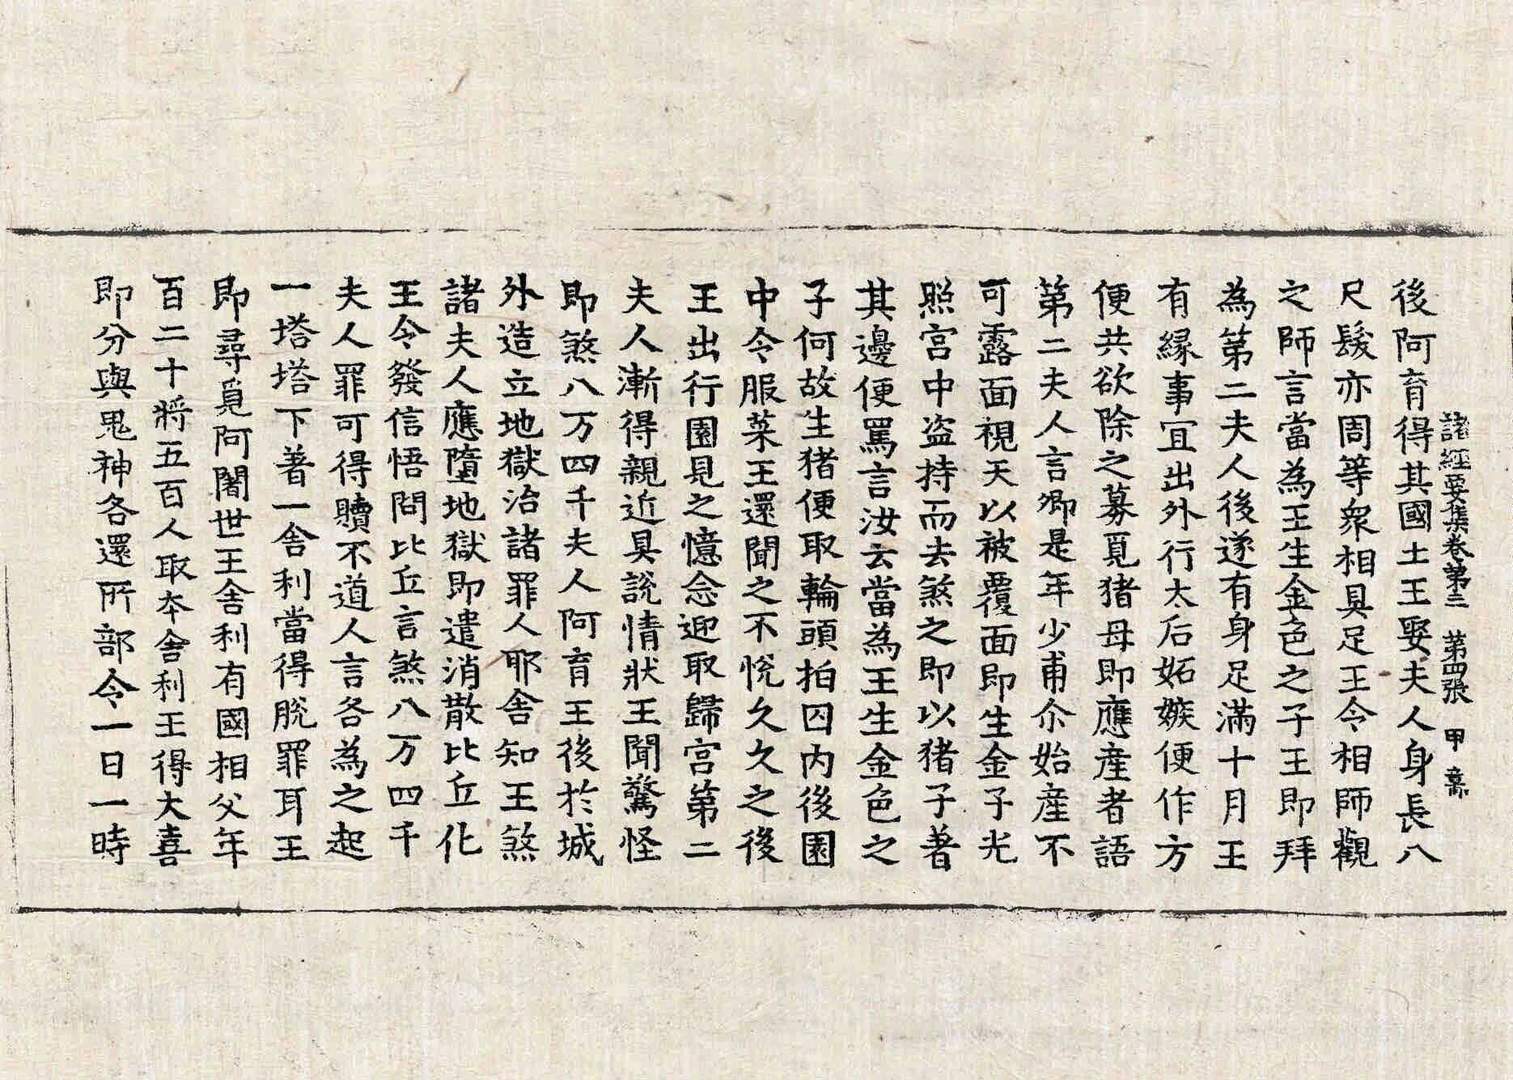 諸經要集卷第三 第四張 甲
後阿育得其國土王娶夫人身長八
尺髮亦周等衆相具足王令相師觀
之師言當為王生金色之子王即拜
為第二夫人後遂有身足滿十月王
有緣事冝出外行太后妬嫉便作方
便共欲除之募覓猪母即應產者語
第二夫人言卿是年少甫尒始產不
可露面視天以被覆面即生金子光
照宮中盜持而去煞之即以猪子著
其邊便罵言汝云當為王生金色之
子何故生猪便取輪頭拍囚内後園
中令服菜王還聞之不悅久久之後
王出行園見之憶念迎取歸宮第二
夫人漸得親近具說情狀王聞驚怪
即煞八万四千夫人阿育王後於城
外造立地獄治諸罪人耶舍知王煞
諸夫人應墮地獄即遣消散比丘化
王令發信悟問比丘言煞八万四千
夫人罪可得贖不道人言各為之起
一塔塔下著一舍利當得脫罪耳王
即尋覓阿闍世王舍利有國相父年
百二十將五百人取夲舍利王得大喜
即分與鬼神各還所部令一日一時